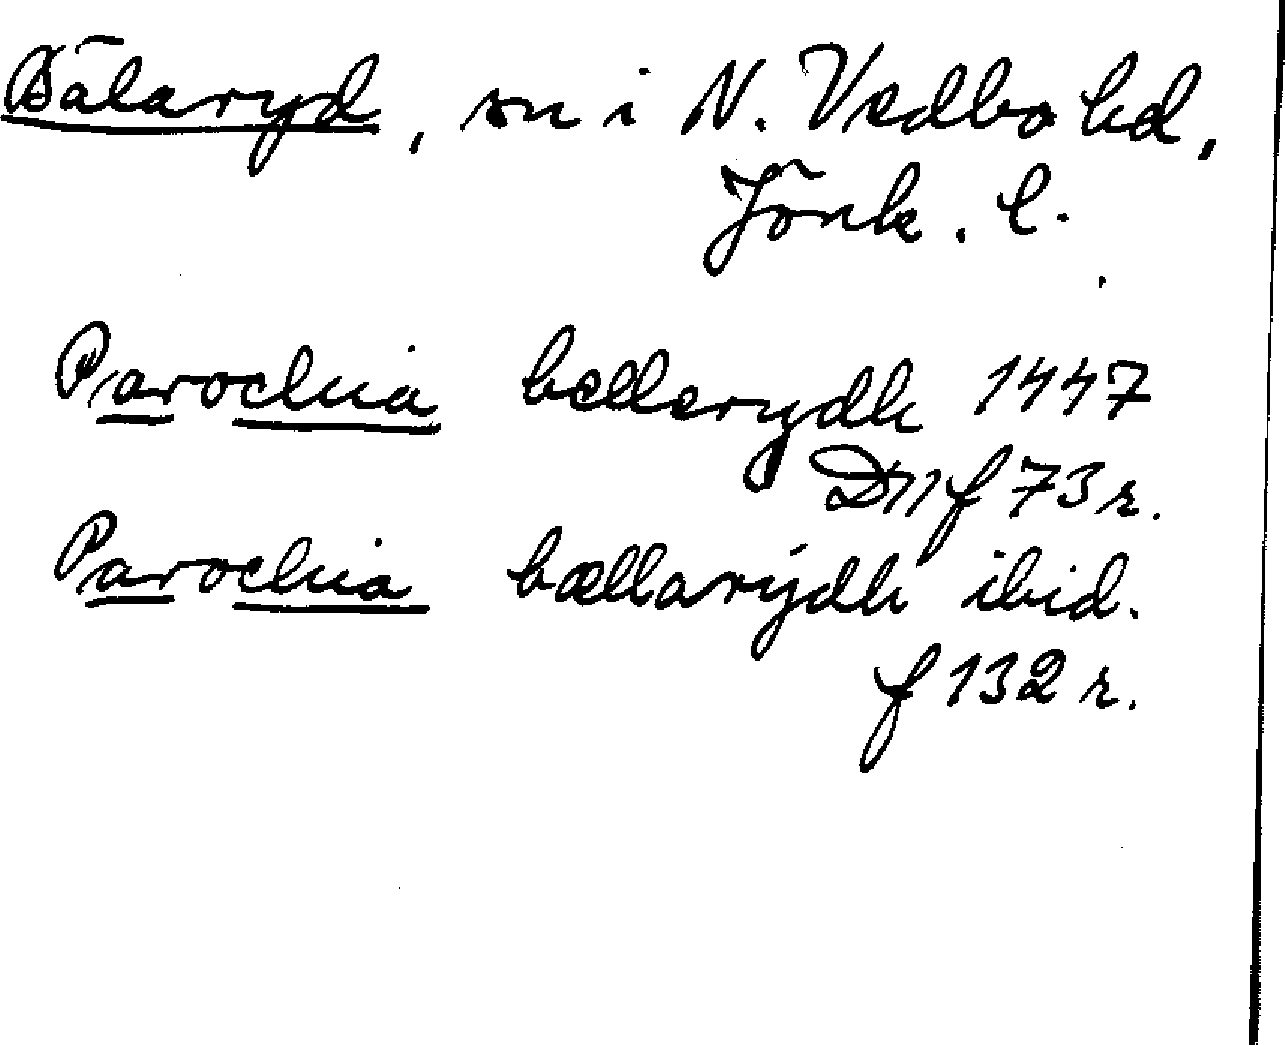 Bälaryd, sn i N. Vedbo hd,
Jönk. l.
Parochia bellerydh 1447
D11 f 73 r.
Parochia bællarydh ibid.
f 132 r.